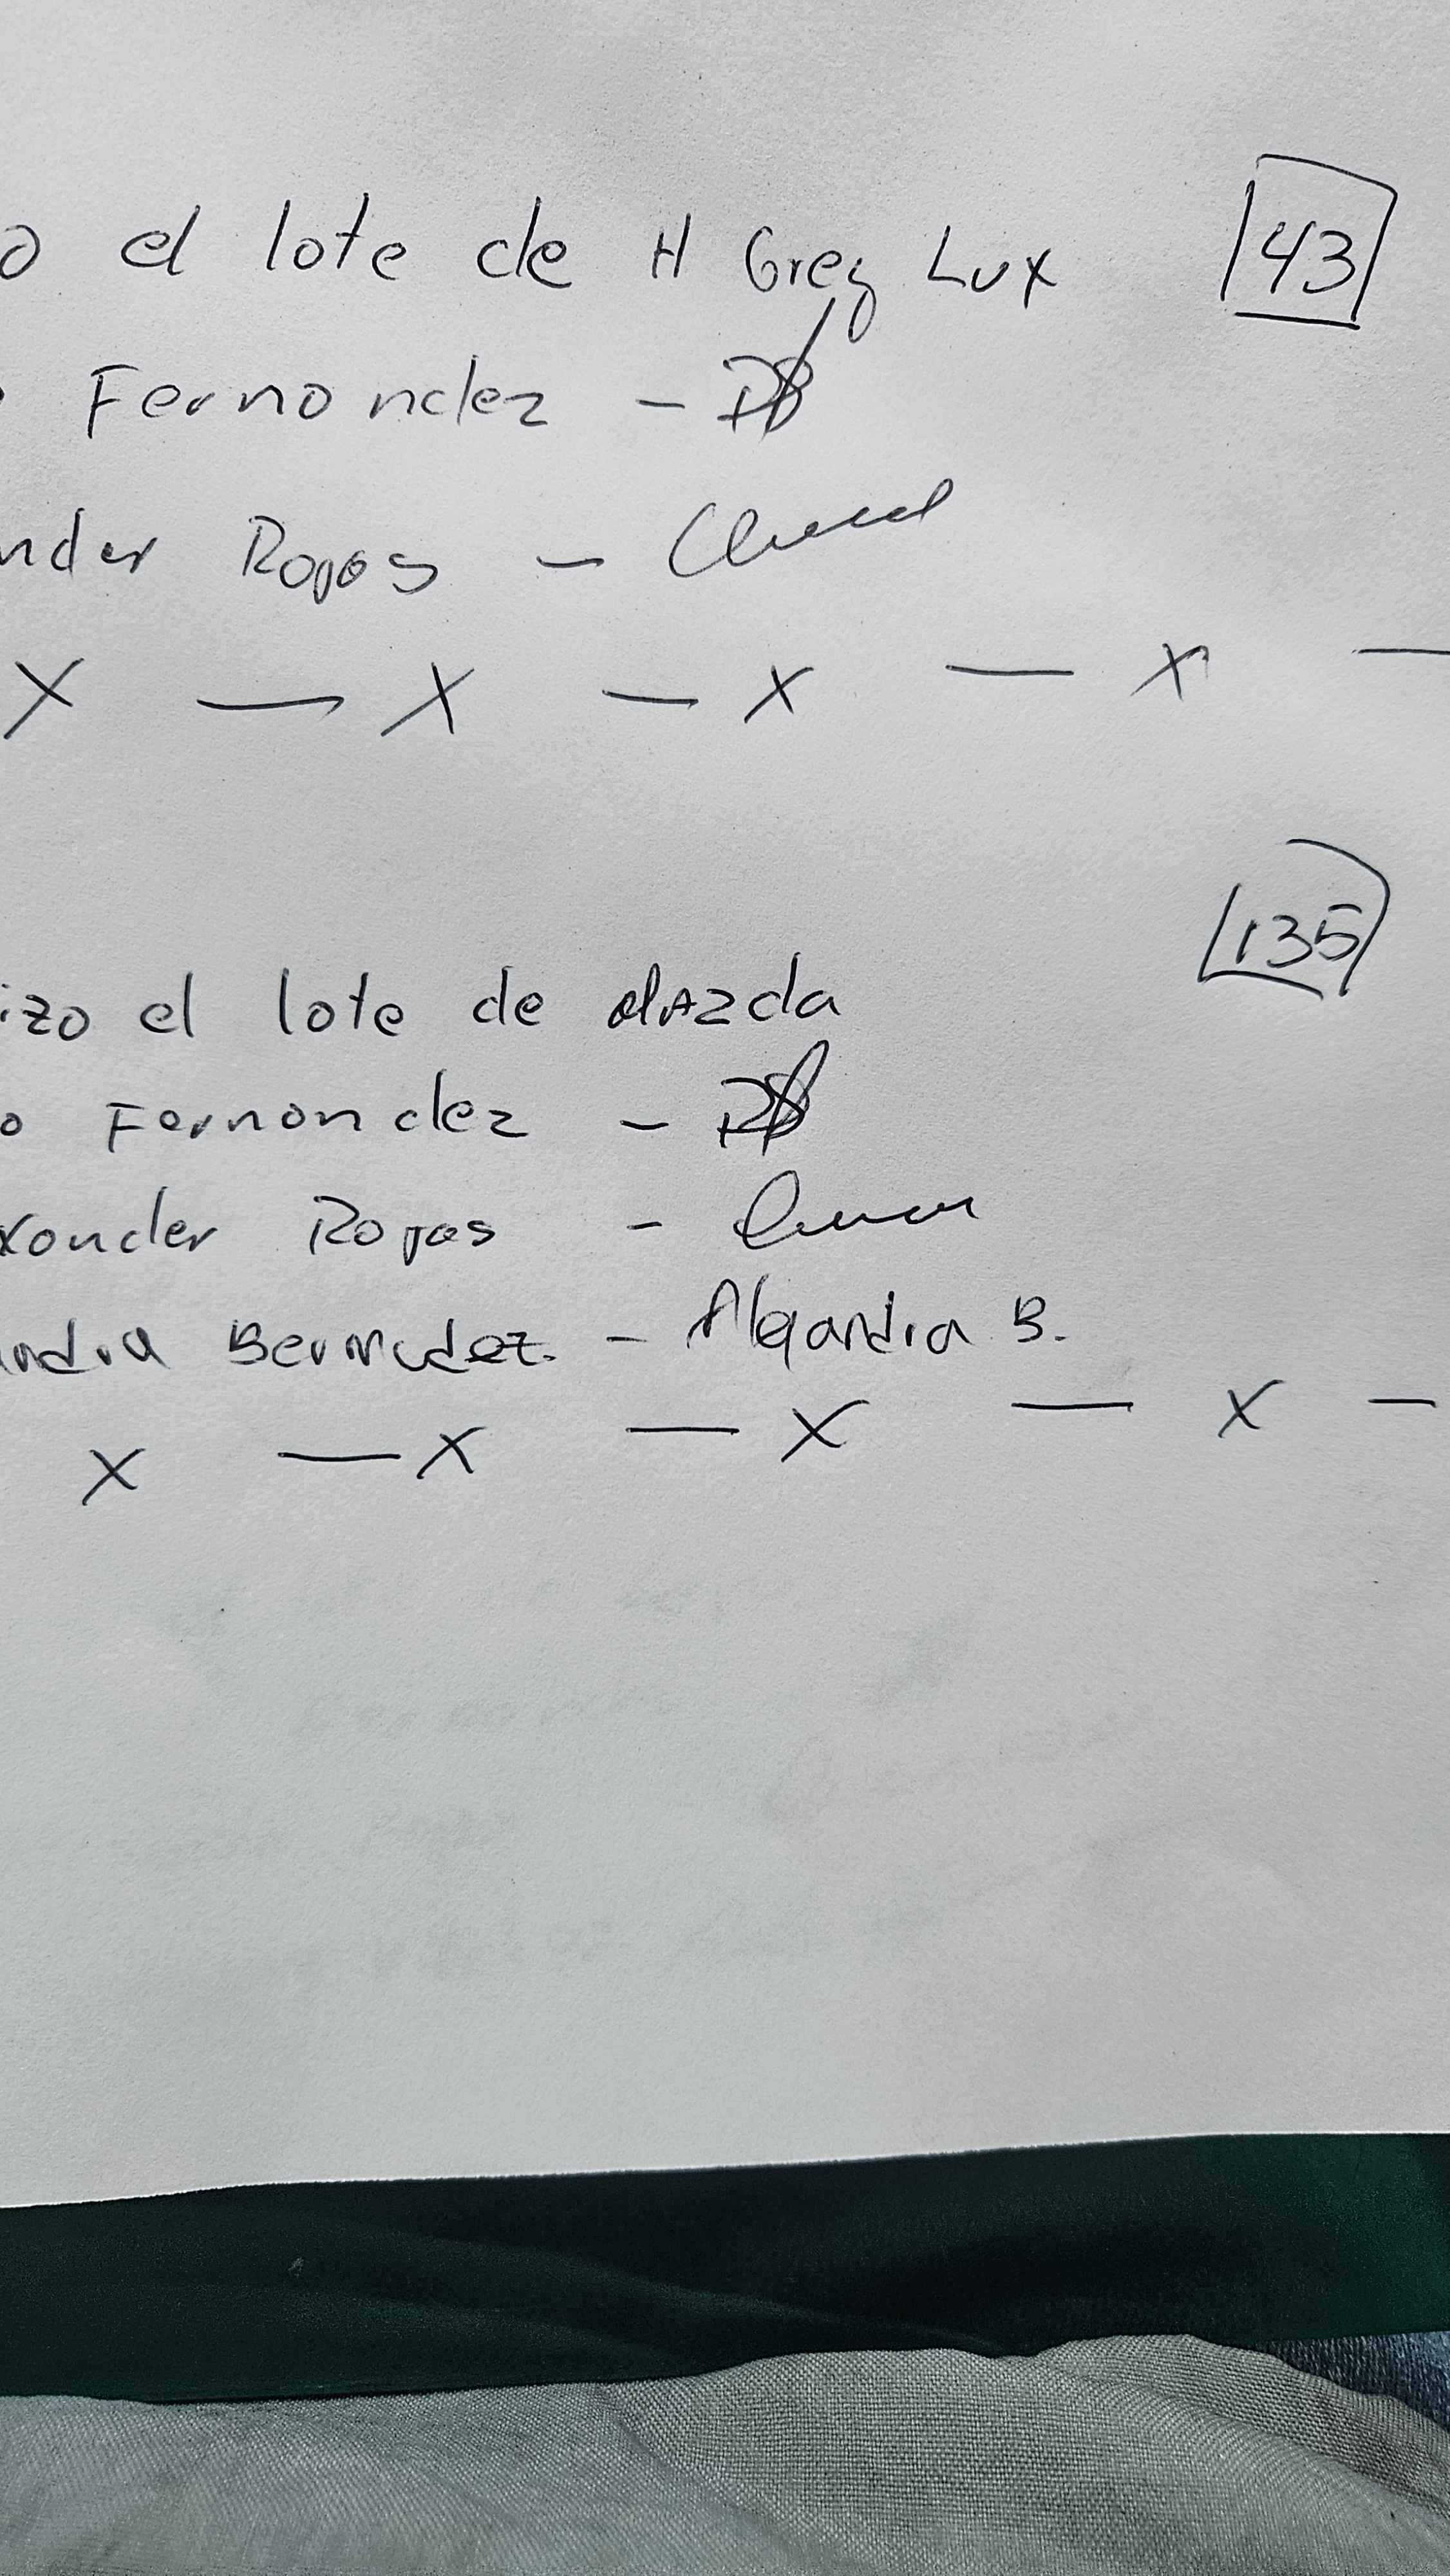 o el lote de H Greg Lux 43
Fernandez -
nder Rojas -
X — X — X — X —
135
izo el lote de Mazda
o Fernandez -
xander Rojas -
andra Bermudez. - Alejandra B.
X — X — X — X —